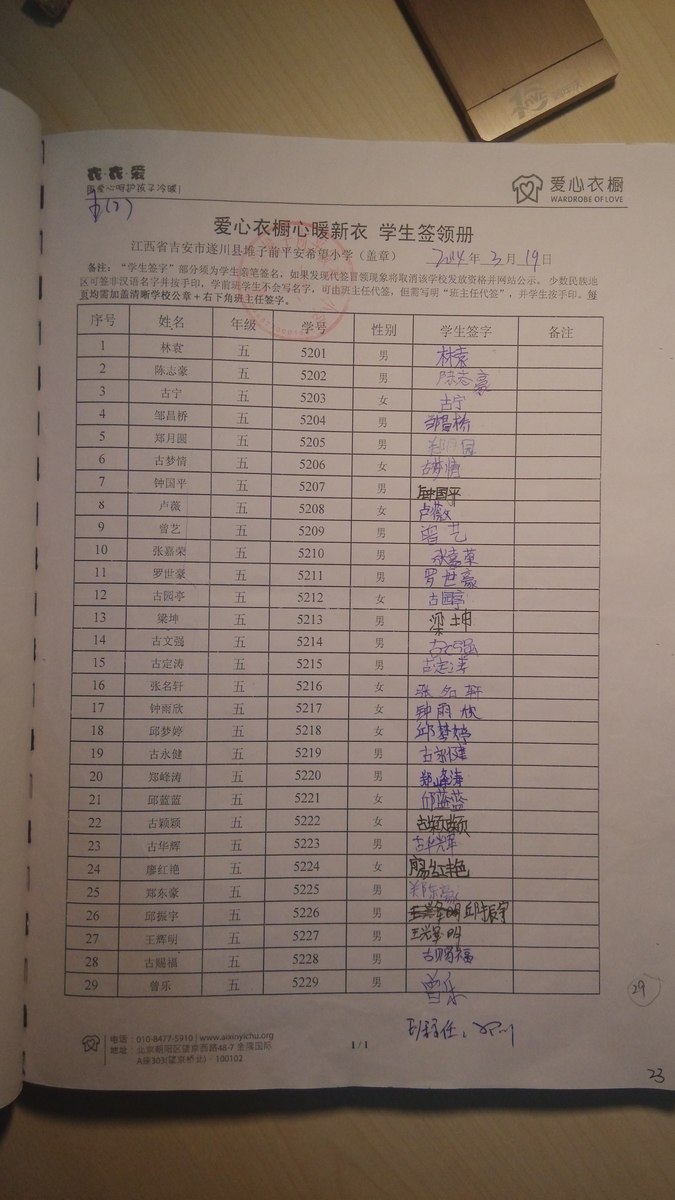 衣·衣·爱
用爱心呵护孩子冷暖!
爱心衣橱
WARDROBE OF LOVE
五(2)
爱心衣橱心暖新衣 学生签领册
江西省吉安市遂川县堆子前平安希望小学(盖章) 2014年3月19日
备注:“学生签字”部分须为学生亲笔签名,如果发现代签冒领现象将取消该学校发放资格并网站公示。少数民族地
区可签非汉语名字并按手印,学前班学生不会写名字,可由班主任代签,但需写明“班主任代签”,并学生按手印。每
页均需加盖清晰学校公章+右下角班主任签字。
序号 姓名 年级 学号 性别 学生签字 备注
1 林袁 五 5201 男 林袁
2 陈志豪 五 5202 男 陈志豪
3 古宁 五 5203 女 古宁
4 邹昌桥 五 5204 男 邹昌桥
5 郑月圆 五 5205 男 郑月园
6 古梦情 五 5206 女 古梦情
7 钟国平 五 5207 男 钟国平
8 卢薇 五 5208 女 卢薇
9 曾艺 五 5209 男 曾艺
10 张嘉荣 五 5210 男 张嘉荣
11 罗世豪 五 5211 男 罗世豪
12 古园亭 五 5212 女 古园亭
13 梁坤 五 5213 男 梁坤
14 古文强 五 5214 男 古文强
15 古定涛 五 5215 男 古定涛
16 张名轩 五 5216 女 张名轩
17 钟雨欣 五 5217 女 钟雨欣
18 邱梦婷 五 5218 女 邱梦婷
19 古永健 五 5219 男 古永健
20 郑峰涛 五 5220 男 郑峰涛
21 邱蓝蓝 五 5221 女 邱蓝蓝
22 古颖颖 五 5222 女 古颖颖
23 古华辉 五 5223 男 古华辉
24 廖红艳 五 5224 女 廖红艳
25 郑东豪 五 5225 男 郑东豪
26 邱振宇 五 5226 男 邱振宇
27 王辉明 五 5227 男 王辉明
28 古赐福 五 5228 男 古赐福
29 曾乐 五 5229 男 曾乐
29
班主任:
电话:010-8477-5910 | www.aixinyichu.org
地址:北京朝阳区望京西路48-7 金隅国际
A座303(望京桥北)·100102
1 / 1
23